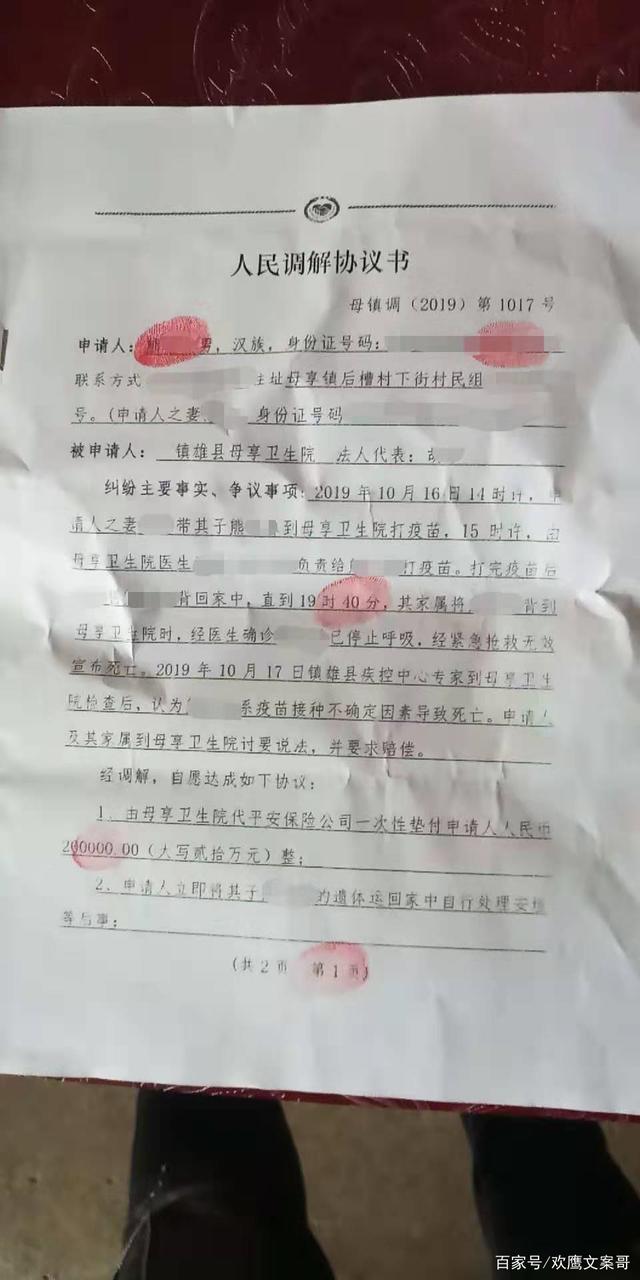 人民调解协议书
母镇调（2019）第1017号
申请人： 男，汉族，身份证号码：
联系方式 主址母享镇后槽村下街村民组
号。（申请人之妻 身份证号码
被申请人： 镇雄县母享卫生院 法人代表：
纠纷主要事实、争议事项：2019年10月16日14时许，申
请人之妻 带其子熊 到母享卫生院打疫苗，15时许，由
母享卫生院医生 负责给 打疫苗。打完疫苗后
背回家中，直到19时40分，其家属将 背到
母享卫生院时，经医生确诊 已停止呼吸，经紧急抢救无效
宣布死亡。2019年10月17日镇雄县疾控中心专家到母享卫生
院检查后，认为 系疫苗接种不确定因素导致死亡。申请人
及其家属到母享卫生院讨要说法，并要求赔偿。
经调解，自愿达成如下协议：
1、由母享卫生院代平安保险公司一次性垫付申请人人民币
200000.00（大写贰拾万元）整；
2、申请人立即将其子 的遗体运回家中自行处理安埋
等后事；
（共2页 第1页）
百家号/欢鹰文案哥